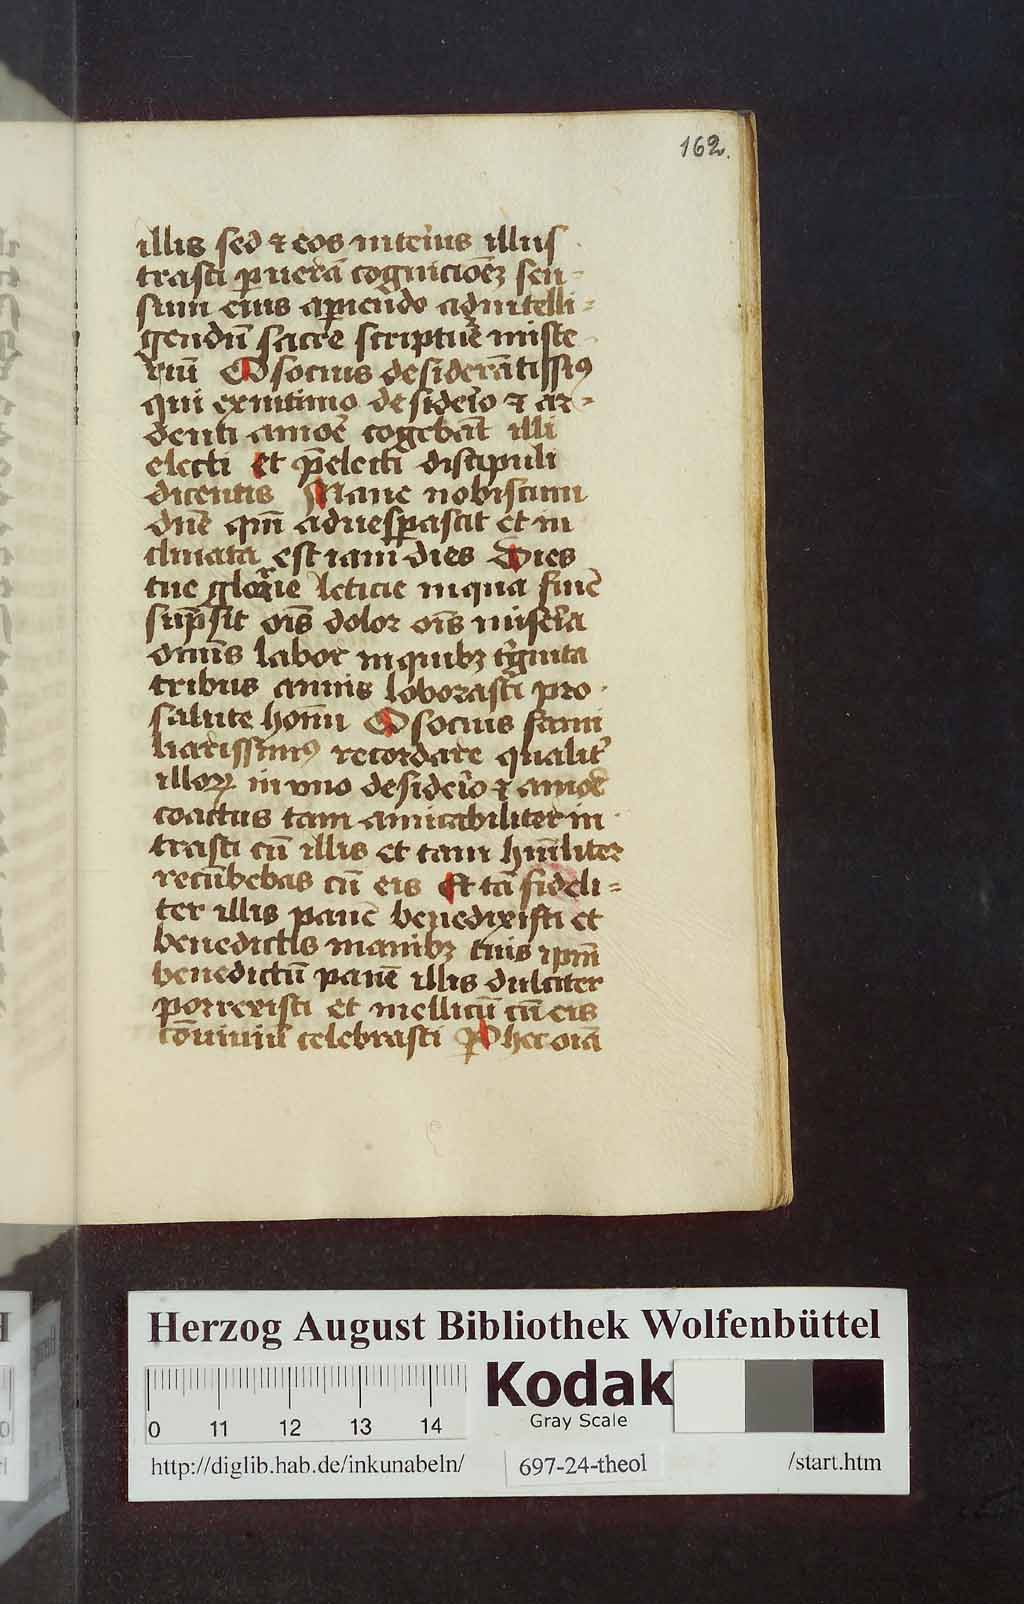 162.
illis sed ⁊ eos interius illus
trasti ꝑ uerā cognicōeꝫ sen=
sum eius aꝑiendo ad intelli=
gendū sacre scripture miste
riū O socius desiderātissiꝰ
qui ex intimo desiderio ⁊ ar=
denti amore cogebāt illi
electi et p̄electi discipuli
dicentis Mane nobiscum
dn̄e qm̄ aduesꝑascit et in
clinata est iam dies Dies
tue glorie leticie in qua finē
sūpsit oīs dolor oīs miseria
omīs labor in quibꝫ triginta
tribus annis loborasti pro
salute hom̄ O socius fami
liarissimꝰ recordare qualit̓
illoꝝ in vno desiderio ⁊ amore
coactus tam amicabiliter in
trasti cū illis et tam hūiliter
recūbebas cū eis Et tā fideli=
ter illis panē benedixisti et
benedictis manibꝫ tuis ip̄m
benedictū panē illis dulciter
porrexisti et mellicū cū eis
cōuiuiū celebrasti P hec oīa
Herzog August Bibliothek Wolfenbüttel
0 11 12 13 14
Kodak
Gray Scale
http://diglib.hab.de/inkunabeln/ 697-24-theol /start.htm